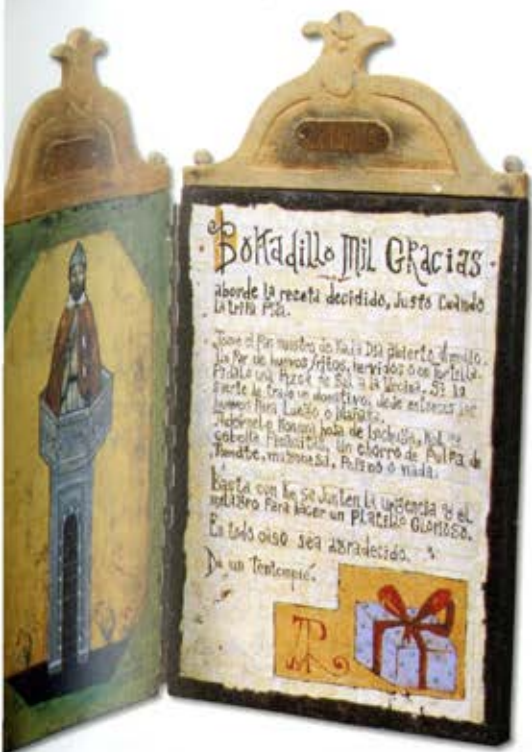 Bokadillo Mil Gracias
aborde la receta decidido, Justo Cuando
la tripa Pía.
Tome el Pan nuestro de Kada Día abierto
Un Par de huevos fritos, hervidos o en Tortilla.
Pídale una Pizca de Sal a la Vecina. Si la
suerte le trajo un donativo, deje entonces los
huevos Para Luego o Mañana.
hoja de Lechuga,
cebolla un chorro de Pulpa de
Tomate, mayonesa, Pepino o nada.
Basta con Ke se Junten la urgencia y el
milagro Para hacer un Platillo Glorioso.
En todo caso sea agradecido.
De un Tentempié.